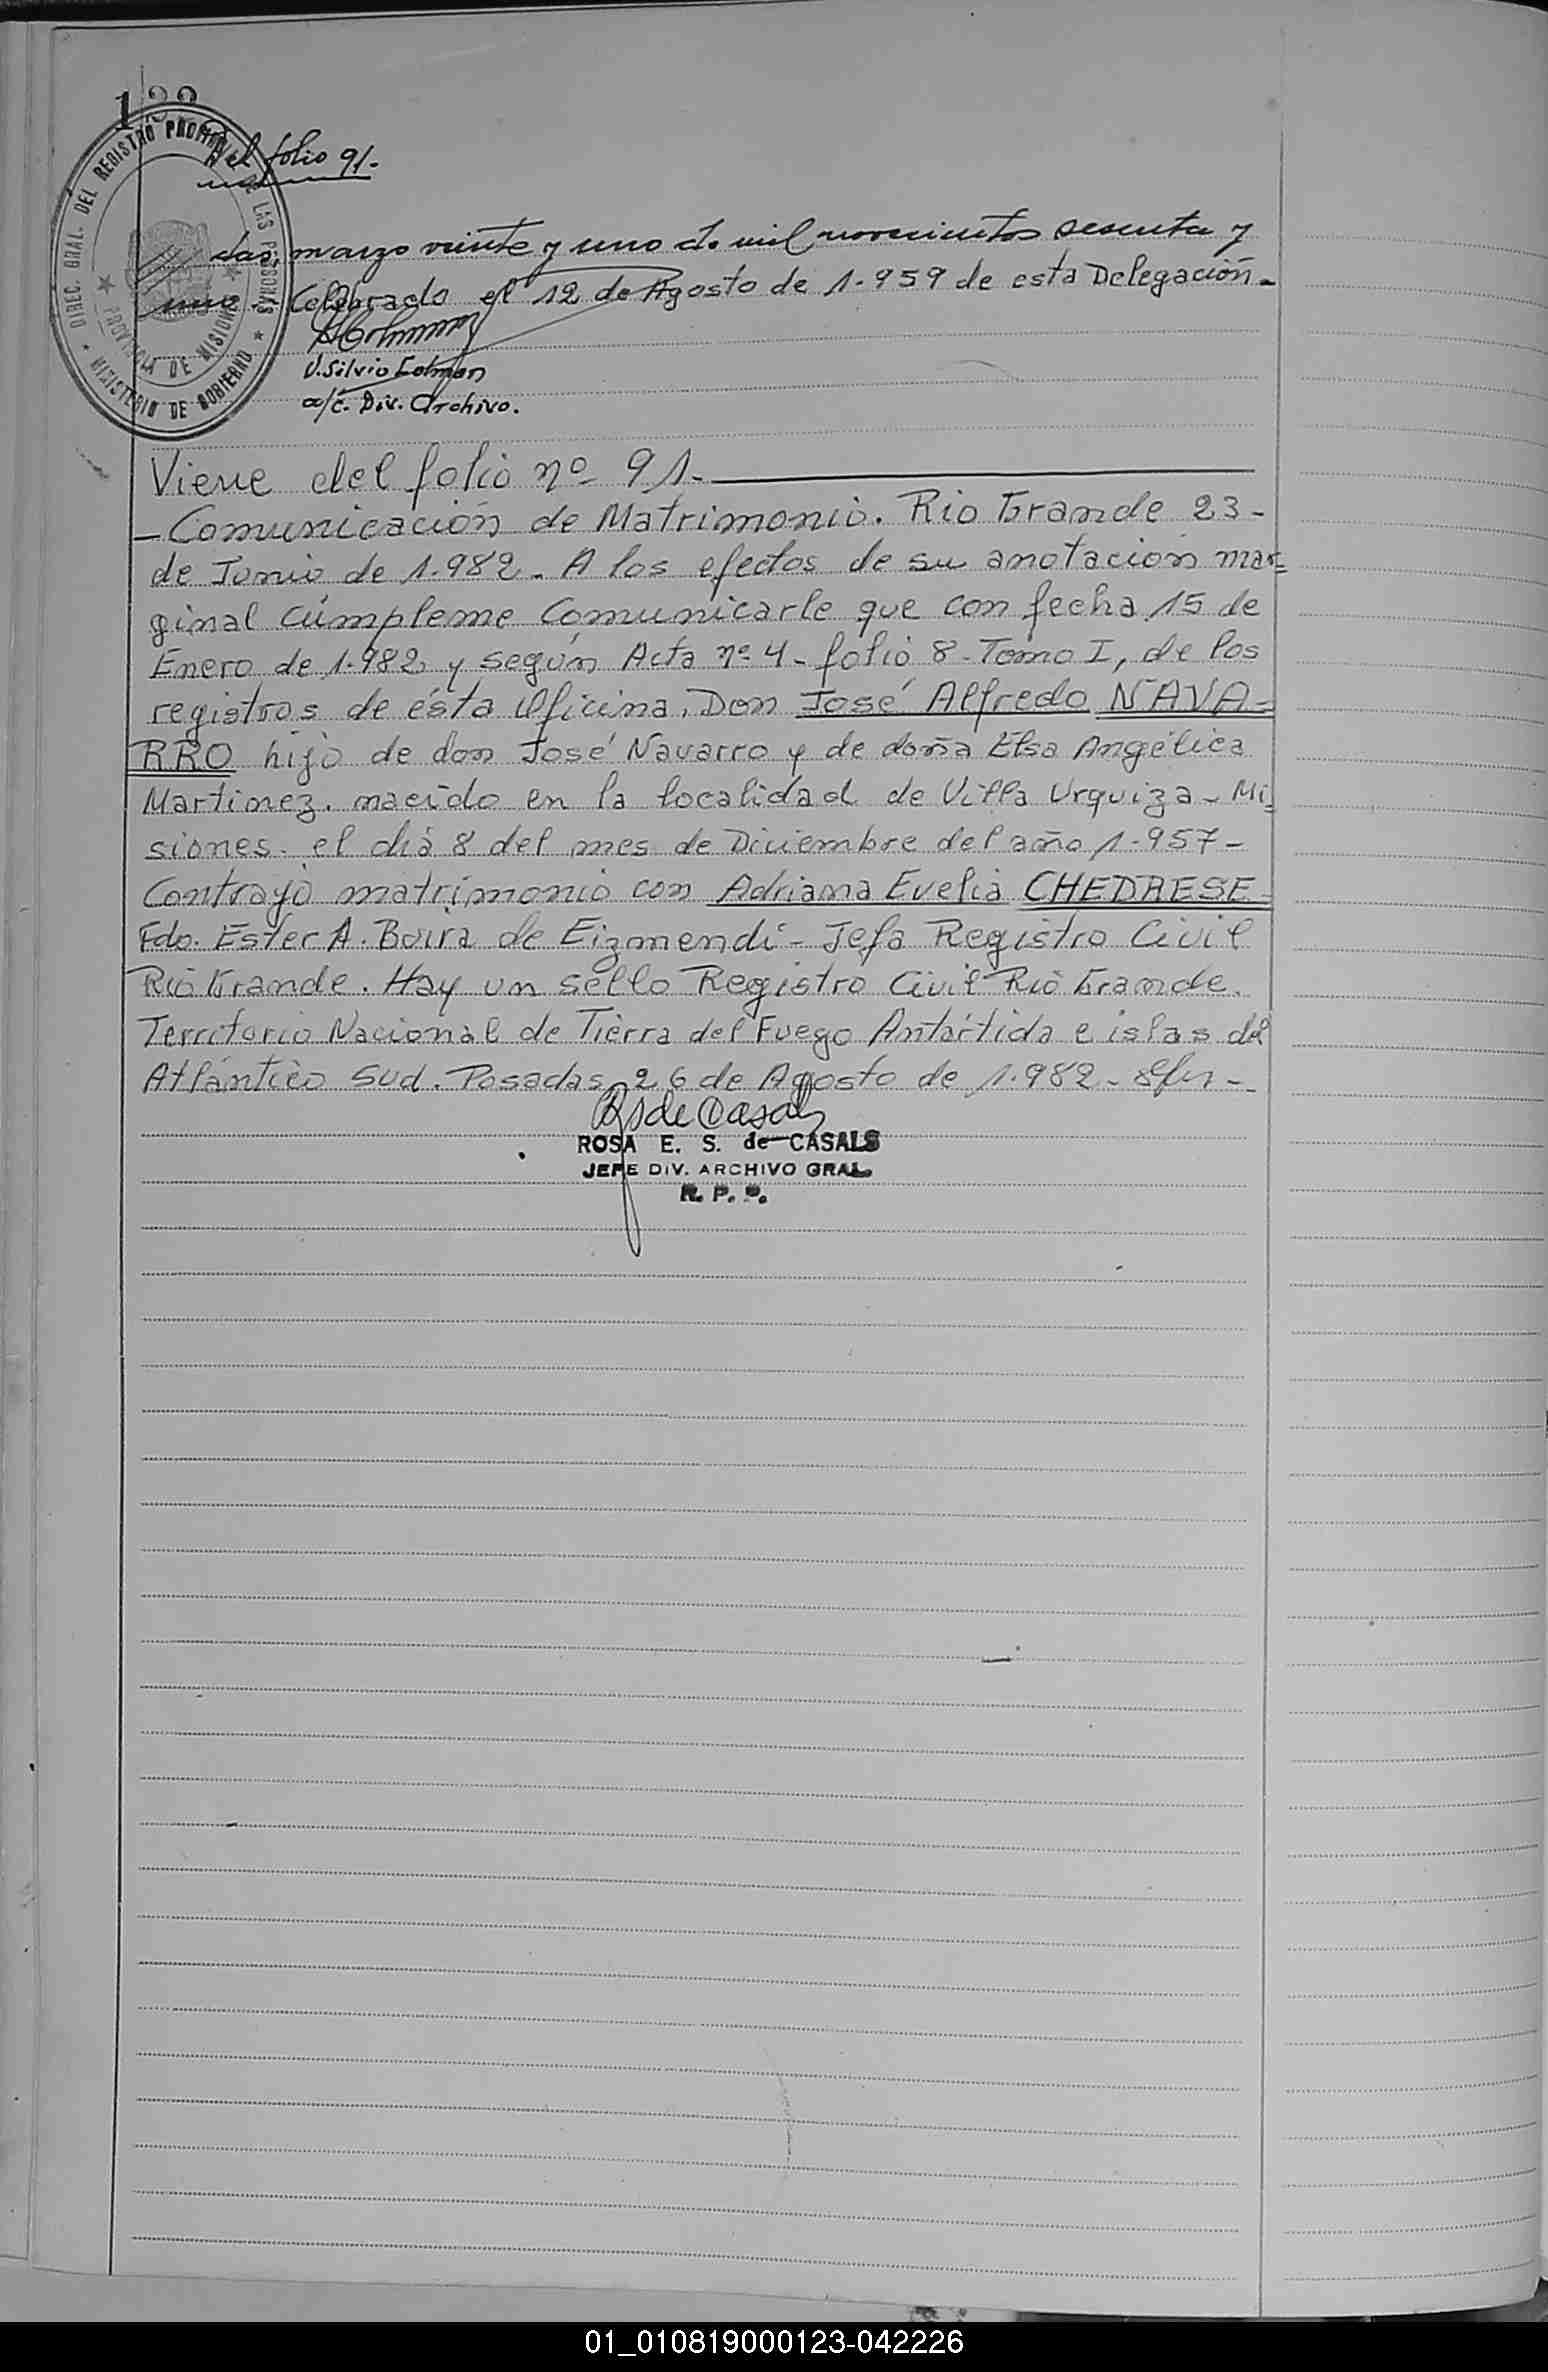 1
Del folio 91.-
das, marzo veinte y uno de mil novecientos sesenta y
uno. Celebrado el 12 de Agosto de 1.959 de esta Delegación.-
V. Silvio Colman
a/c. Div. Archivo.
DIREC. GRAL. DEL REGISTRO PROVINCIAL DE LAS PERSONAS
MINISTERIO DE GOBIERNO
PROVINCIA DE MISIONES
Viene del folio nº 91.-
-Comunicación de Matrimonio. Rio Grande 23-
de Junio de 1.982. A los efectos de su anotación mar=
ginal cúmpleme Comunicarle que con fecha 15 de
Enero de 1.982, y según Acta nº 4- folio 8- Tomo I, de los
registros de ésta Oficina, Don José Alfredo NAVA=
RRO hijo de don José Navarro y de doña Elsa Angélica
Martinez. nacido en la localidad de Villa Urquiza- Mi=
siones- el día 8 del mes de Diciembre del año 1.957-
Contrajo matrimonio con Adriana Evelia CHEDRESE-
Fdo. Ester A. Boira de Eizmendi- Jefa Registro Civil
Rio Grande. Hay un sello Registro Civil Rio Grande.
Territorio Nacional de Tierra del Fuego Antártida e islas del
Atlántico Sud. Posadas, 26 de Agosto de 1.982-
ROSA E. S. de CASALS
JEFE DIV. ARCHIVO GRAL.
R. P. P.
01_010819000123-042226